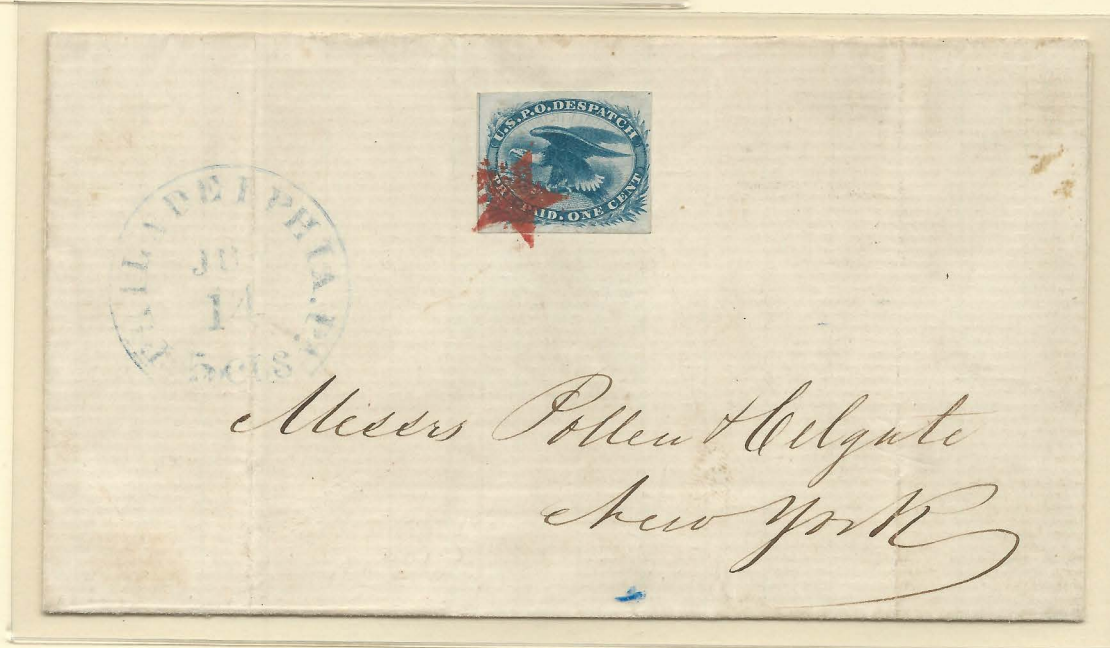 U.S.P.O. DESPATCH
PRE-PAID. ONE CENT
PHILADELPHIA. Pa
14
5 cts
Messrs Pollen & Colgate
New York